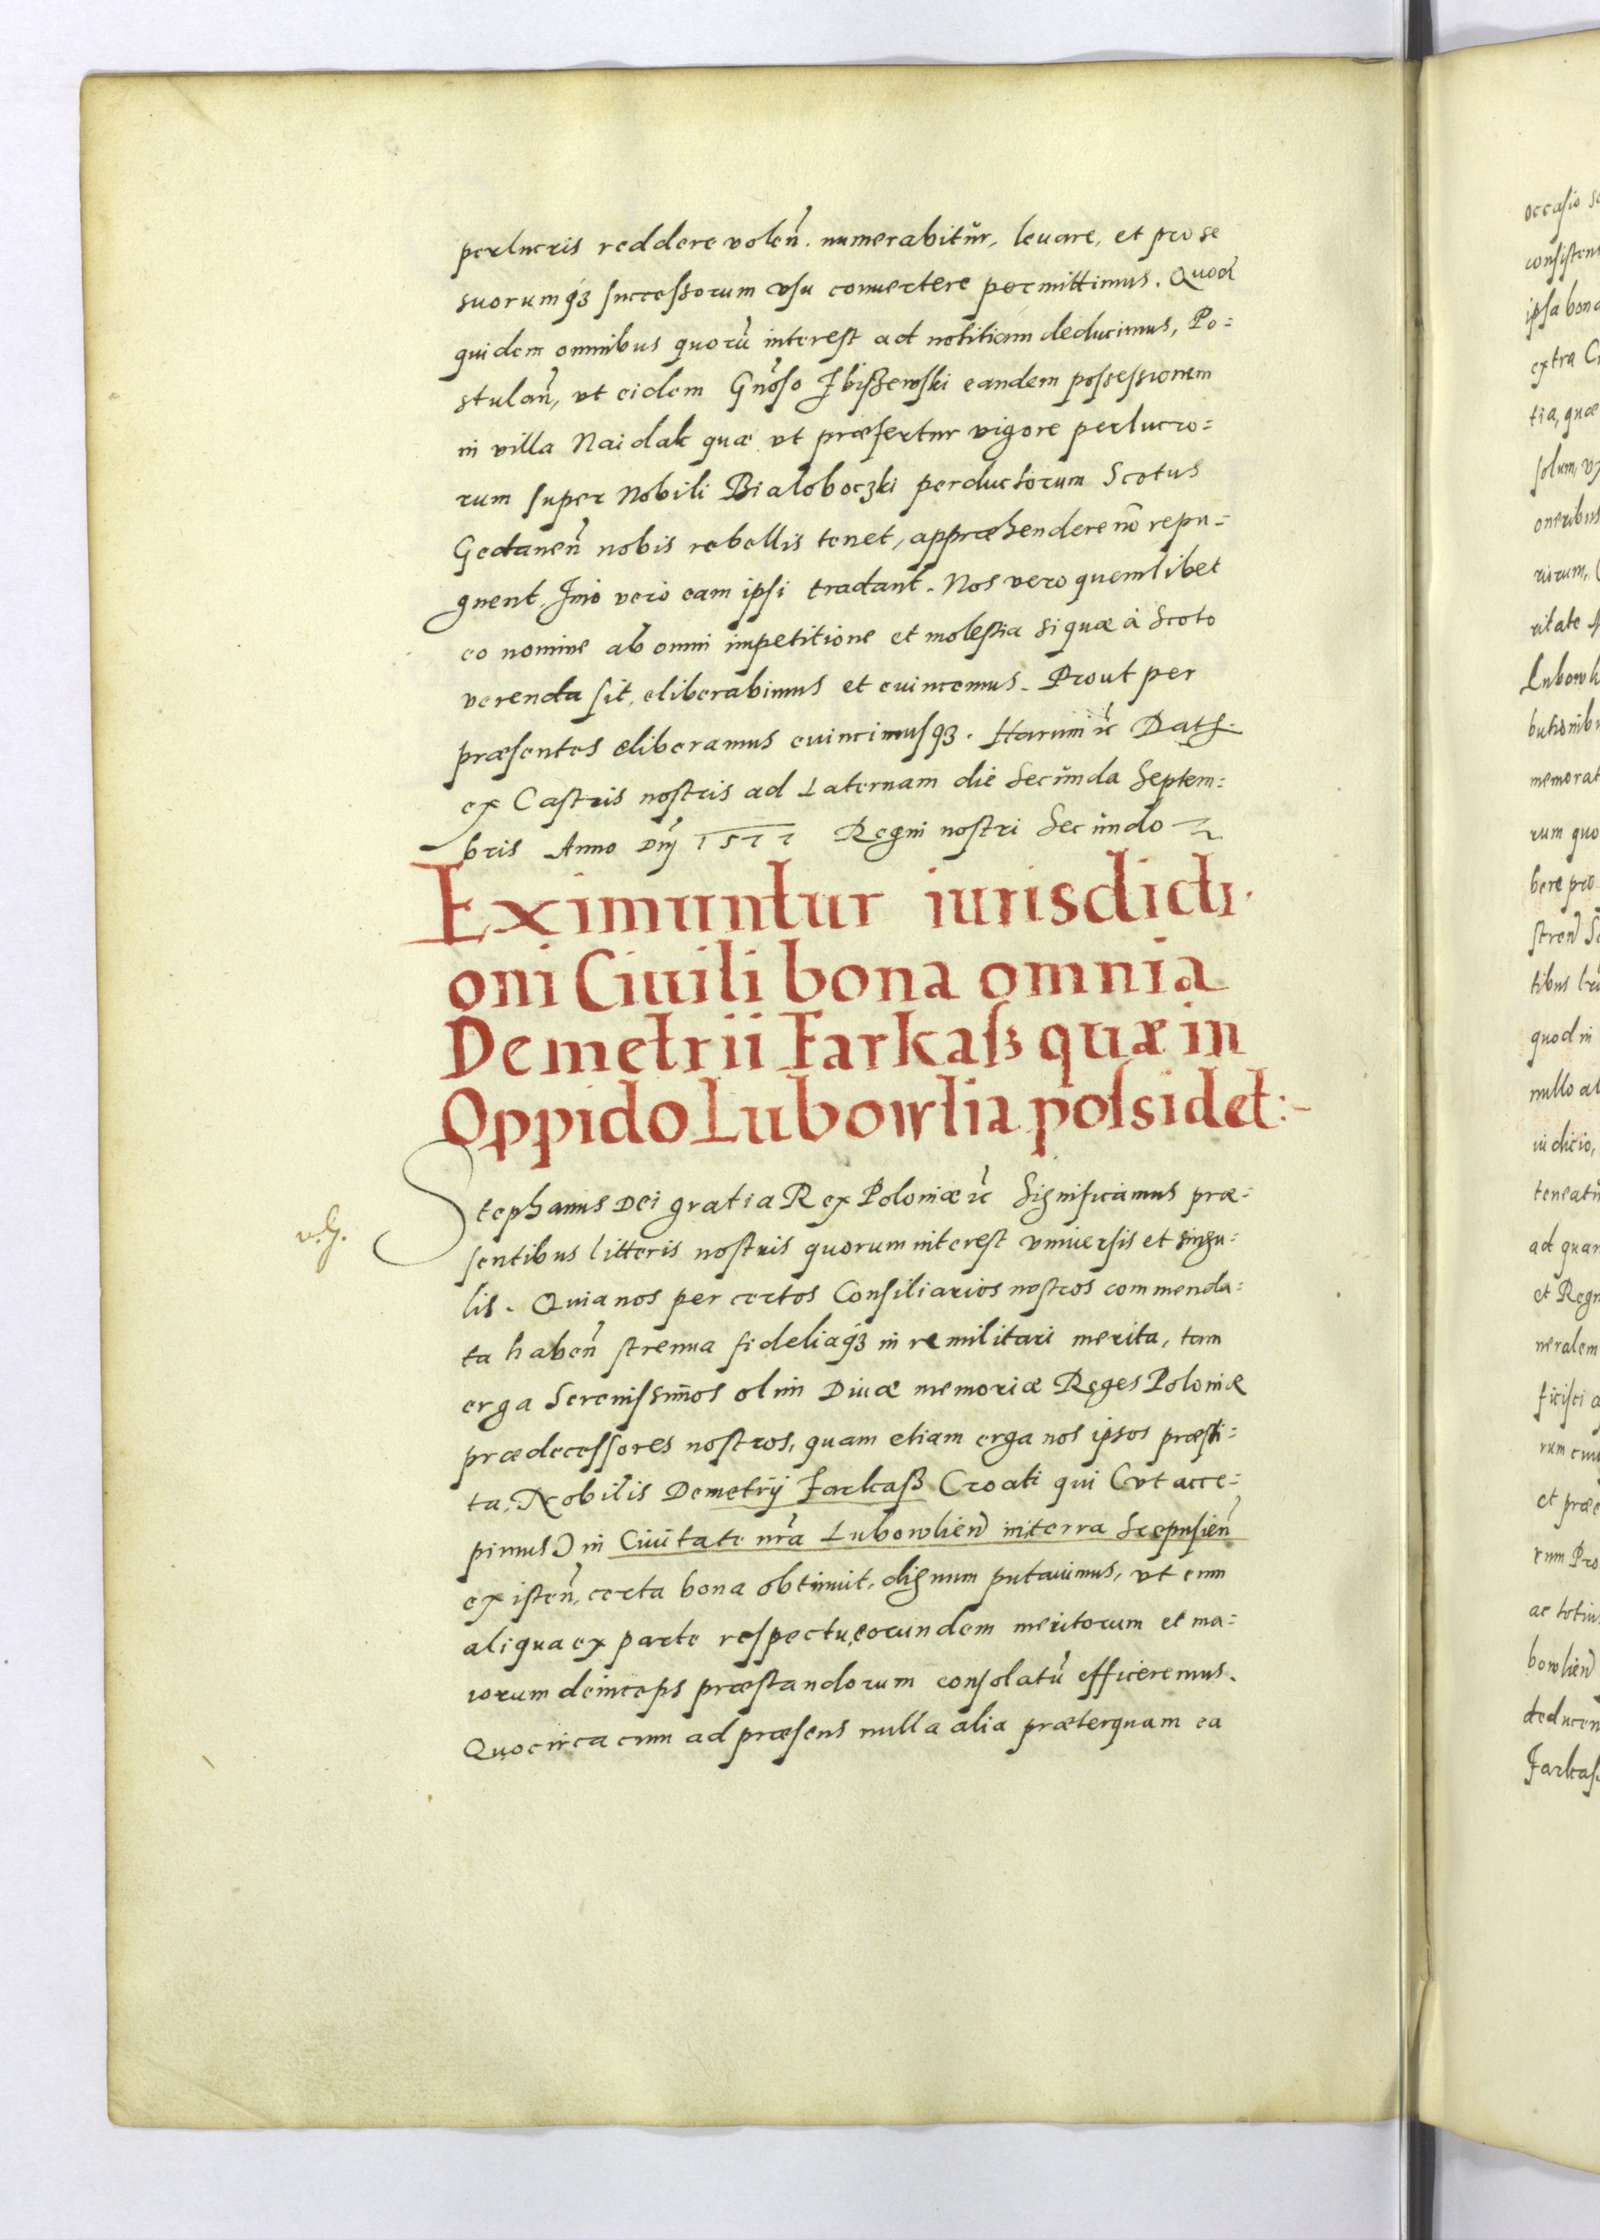 perlucris reddere volen̄. numerabitŭr, levare, et pro se
suorumq́ʒ successorum vsu convertere permittimus. Quod
quidem omnibus quorū interest ad notitiam deducimus, Po=
stulan̄, vt eidem Gn̄oso Zbiszewski eandem possessionem
in villa Naidak quæ vt præfertur vigore perlucro=
rum super Nobili Bialoboczki perductorum Scotus
Gedanen̄ nobis rebellis tenet, appræhendere nō repu=
gnent. Imò verò eam ipsi tradant. Nos vero quemlibet
eo nomine ab omni impetitione et molestia si quæ à Scoto
verenda sit, eliberabimus et evincemus. Prout per
præsentes eliberamus evincimusqʒ. Harum ꝛc̄ Datꝭ
ex Castris nostris ad Laternam die Secŭnda Septem=
bris Anno Dnj 1577 Regni nostri Secŭndo
Eximuntur iurisdicti
oni Ciuili bona omnia
Demetrii Farkaß quæ in
Oppido Lubowlia possidet:-
Stephanus Dei gratia Rex Poloniæ ꝛc̄ Significamus præ=
sentibus litteris nostris quorum interest vniversis et singu=
lis. Quia nos per certos Consiliarios nostros commenda=
ta haben̄ strenua fideliaq́ʒ in re militari merita, tam
erga Serenissimos olim Divæ memoriæ Reges Poloniæ
prædecessores nostros, quam etiam erga nos ipsos præsti=
ta, Nobilis Demetrij Farkaß Croati qui (vt acce=
pimus) in Civitate nr̄a Lubowlien̄ in terra Scepusien̄
existen̄, certa bona obtinuit, dignum putavimus, vt eum
aliqua ex parte respectu, eorundem meritorum et ma=
iorum deinceps præstandorum consolatū efficeremus.
Quocirca cum ad præsens nulla alia præterquam ea
occasio
consisten
ipsa bona
extra
tia, quæ
solum,
oneribus
riorum,
ritate
Lubowli
butionibu
memorat
rum quo
bere pro
stren̄
tibus
quod in
nullo al
iudicio,
teneatŭ
ad quam
et Regn
neralem
ficisci a
rum
et præ
rum Pro
ac totiu
bowlien̄
deducen
Farkaß